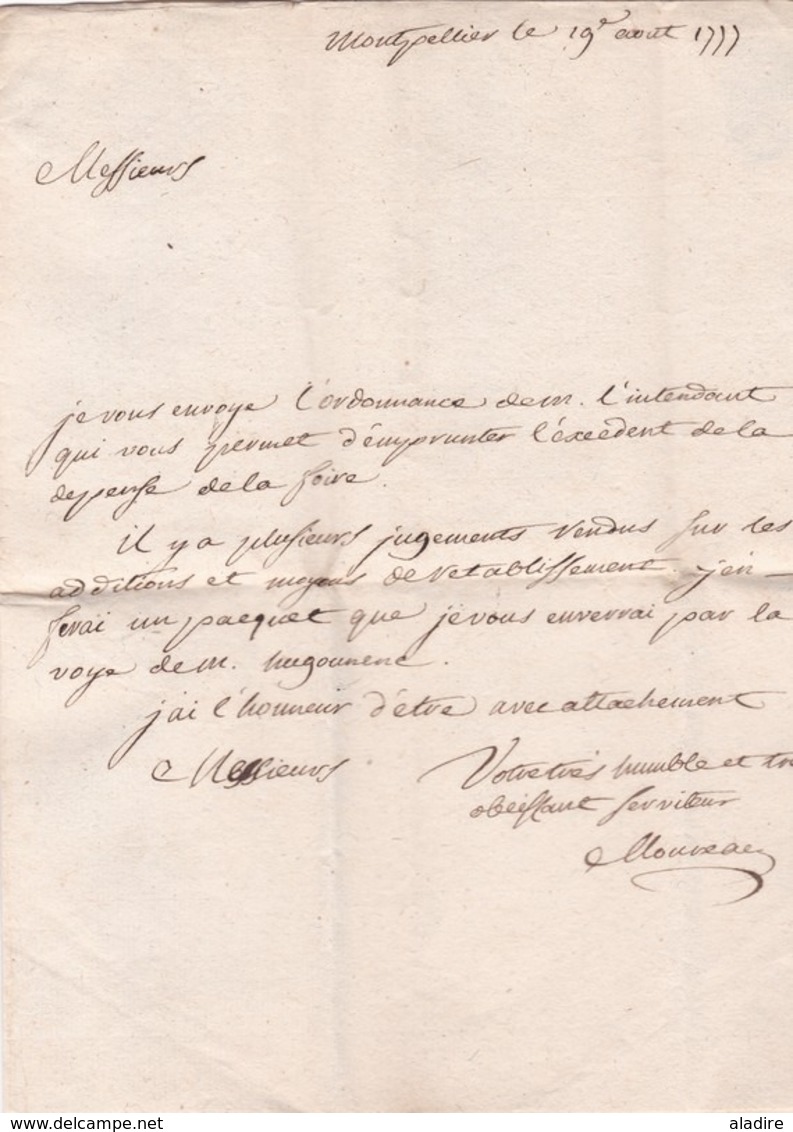 Montpellier le 19e aout 1777
Messieurs
je vous envoye l'ordonnance de m. l'intendant
qui vous permet d'émprunter l'éxcédent de la
depense de la foire.
il y a plusieurs jugements rendus sur les
additions et moyens de retablissement. j'en
ferai un pacquet que je vous enverrai par la
voye de m. hugounenc.
j'ai l'honneur d'étre avec attachement
Messieurs
Votre trés humble et tr
obéissant serviteur
aladire